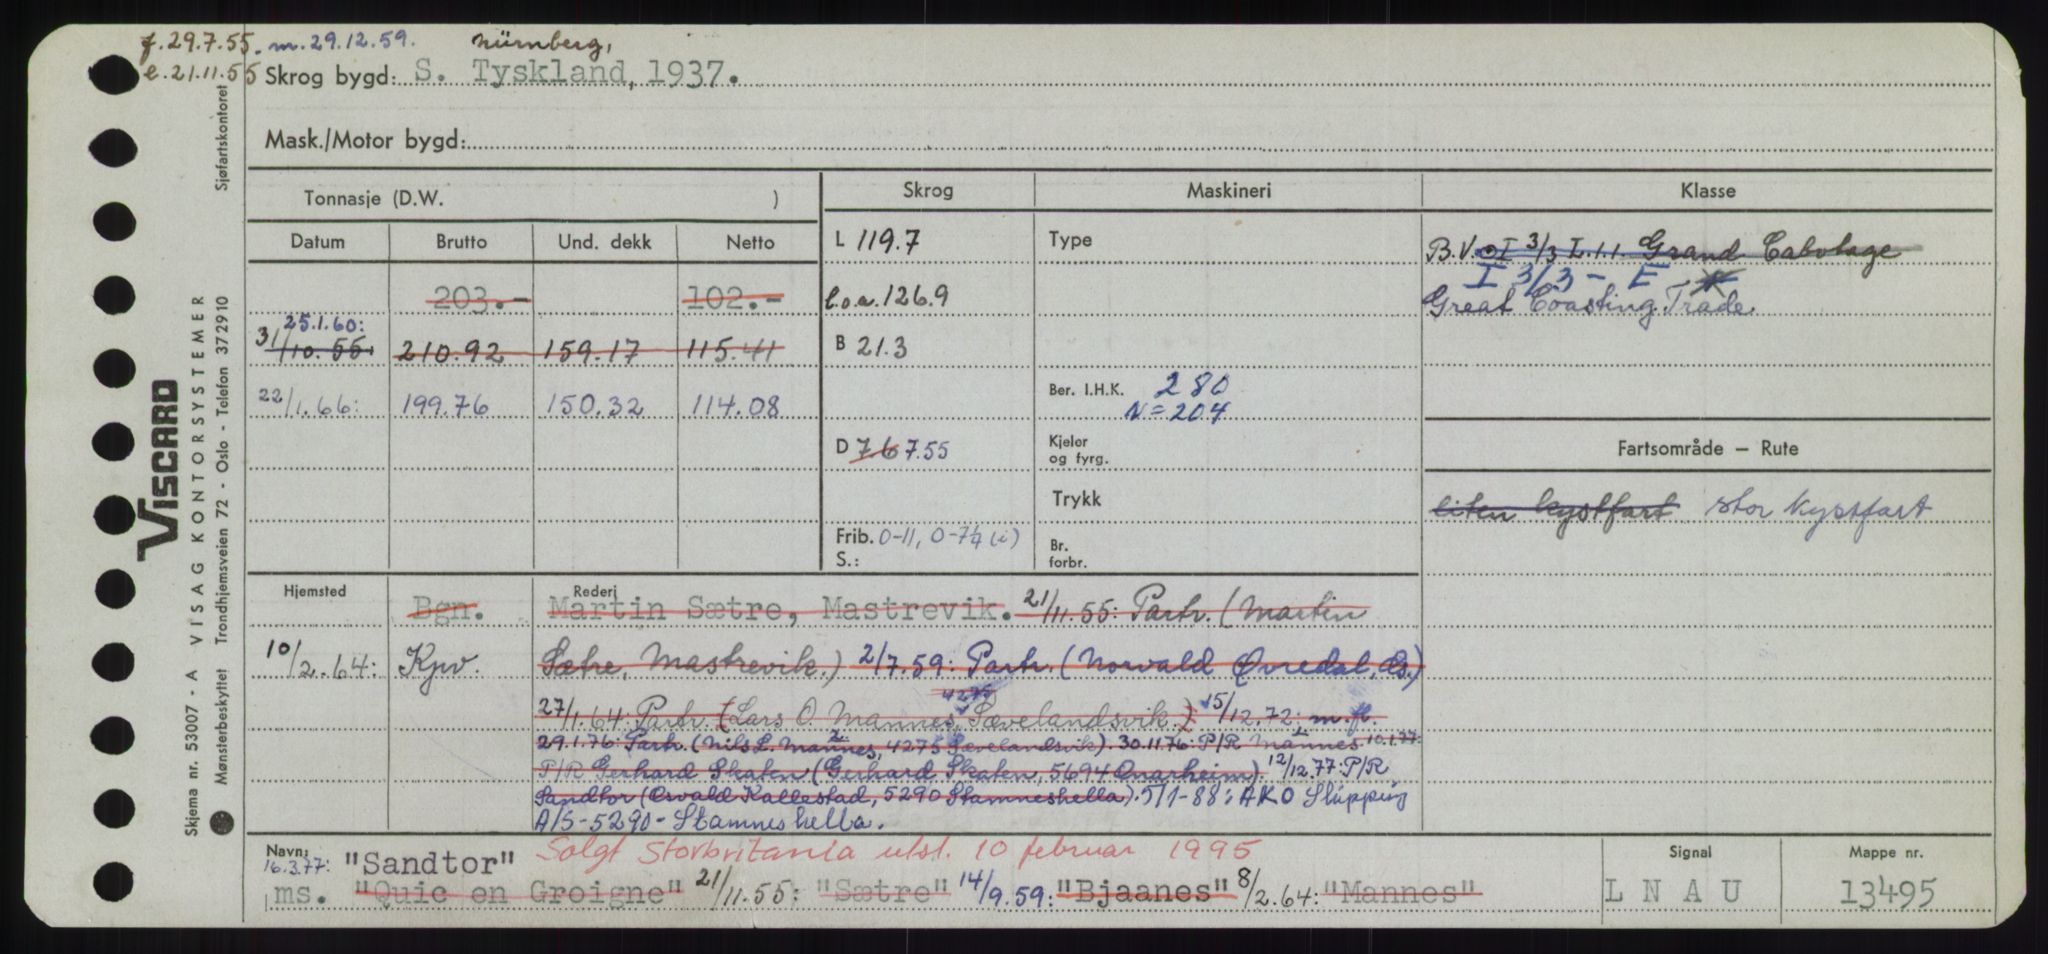 f. 29.7.55. m. 29.12.59. Nürnberg,
e. 21.11.55 Skrog bygd: S. Tyskland, 1937.
Mask./Motor bygd:
Tonnasje (D.W. )
Skrog
Maskineri
Klasse
Datum Brutto Und. dekk Netto
203.- 102.-
25.1.60:
31/10.55. 210.92 159.17 115.41
22/1.66: 199.76 150.32 114.08
L 119.7
l.o.a. 126.9
B 21.3
D 7.6 7.55
Frib. 0-11, 0-7¼ (i)
S.:
Type
Ber. I.H.K. 280
N = 204
Kjeler
og fyrg.
Trykk
Br.
forbr.
B.V. I 3/3 L.1.1. Grand Cabotage
I 3/3 - E
Great Coasting Trade.
Fartsområde — Rute
liten kystfart stor kystfart
Hjemsted
Bgn.
10/2.64: Kpv.
Rederi
Martin Sætre, Mastrevik. 21/11.55: Partr. (Martin
Sætre, Mastrevik.) 2/7.59: Partr. (Norvald Øvredal, Os.)
4275
27/1.64: Partr. (Lars O. Mannes, Sævelandsvik.) 15/12.72: m.fl.
29.1.76: Partr. (Nils L. Mannes, 4275 Sævelandsvik). 30.11.76: P/R Mannes 10.1.77:
P/R Gerhard Skaten (Gerhard Skaten, 5694 Onarheim). 12/12.77: P/R
Sandtor (Osvald Kallestad, 5290 Stamneshella). 5/1-88: AKO Shipping
A/S - 5290 - Stamneshella.
Navn: Solgt Storbritania utsl. 10 februar 1995
16.3.77: "Sandtor"
ms. "Quic en Groigne" 21/11.55: "Sætre" 14/9.59: "Bjaanes" 8/2.64: "Mannes"
Signal
L N A U
Mappe nr.
13495
VISCARD
Skjema nr. 53007 - A VISAG KONTORSYSTEMER
Mønsterbeskyttet Trondhjemsveien 72 - Oslo - Telefon 372910 Sjøfartskontoret